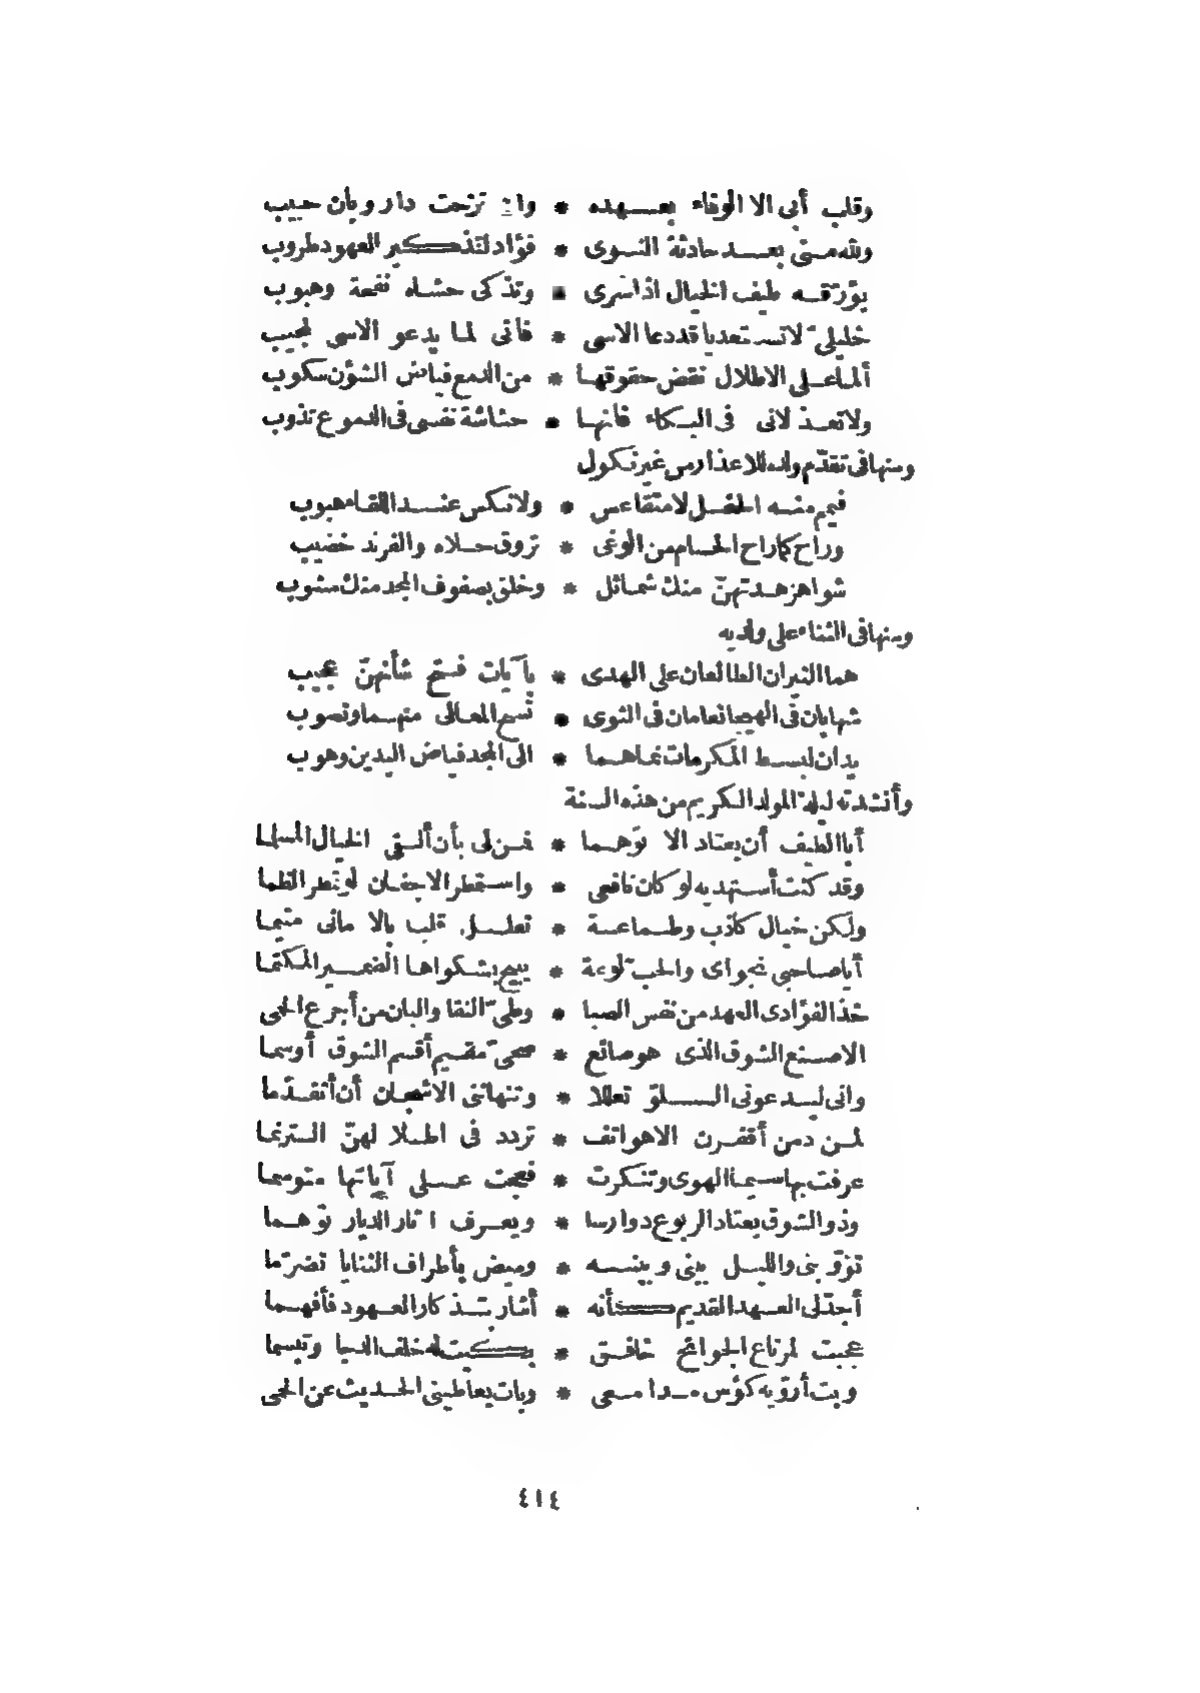 وقلب أبى الا الوفاء بعـهده * وان نزحت دار وبان حبيب
ولله منى بعـد حادثة النـوى * فؤاد لتذكير العهود طروب
يؤرّقـه طيف الخيال اذا سرى * وتذكى حشـاه نفحة وهبوب
خليلىّ لا تسـتعديا قد دعا الاسى * فانى لما يدعو الاسى لمجيب
ألمـا على الاطلال نقض حقوقها * من الدمع فياض الشؤن سكوب
ولا تعـذلانى فى البـكاء فانها * حشاشة نفسى فى الدموع تذوب
ومنها فى تقدّم ولده للاعذار من غير نكول
فيمم منـه الحفـل لا متقاعس * ولا نكس عنـد اللقاء هيوب
وراح كما راح الحسام من الوغى * تروق حـلاه والفرند خضيب
شواهد هـدتهنّ منك شمائل * وخلق بصفوف المجد منك مشوب
ومنها فى الثناء على ولديه
هما النيران الطالعان على الهدى * بآيات فتح شأنهنّ عجيب
شهابان فى الهيجا نعامان فى الثوى * تسح المعالى منهـما وتصوب
يدان لبسـط المكرمات نماهـما * الى المجد فياض اليدين وهوب
وأنشدته ليلة المولد الكريم من هذه السنة
أبا الطيف أن يعتاد الا توّهـما * فمن لى بأن ألـقى الخيال المسلما
وقد كنت أستهديه لو كان نافعى * واستمطر الاجفان لو تنطر الظما
ولكن خيال كاذب وطـماعـة * تعلـل قلبا بالامانى متيما
أيا صاحبى نجواى والحبّ لوعة * يبيح بشكواها الضمـير المكتما
خذا لفؤادى العهد من نفس الصبا * وطىّ النقا والبان من أجرع الحمى
الاصنع الشوق الذى هو صانع * فحبىّ مقـيم أقصر الشوق أوسما
وانى ليـدعونى السـلوّ تعللا * وتنهانى الاشجـان أن أتقدّما
لمـن دمن أقفـرن الاهواتف * تردد فى اطـلالهنّ الـترنما
عرفت بها سـيما الهوى وتنكرت * فعجت عـلى آياتها متوسما
وذو الشوق يعتاد الربوع دوارسا * ويعـرف اثار الديار توّهـما
تؤوّبنى والليـل بينى وبينـه * وميض بأطراف الثنايا تضرّما
أجدّ لى العـهد القديم كأنه * أشار بتـذكار العـهود فأفهـما
عجبت لمرتاع الجوانح خافـق * بكيت له خلف الدجا وتبسما
وبت أروّيه كؤس مـدامـعى * وبات يعاطينى الحديث عن الحمى
٤١٤